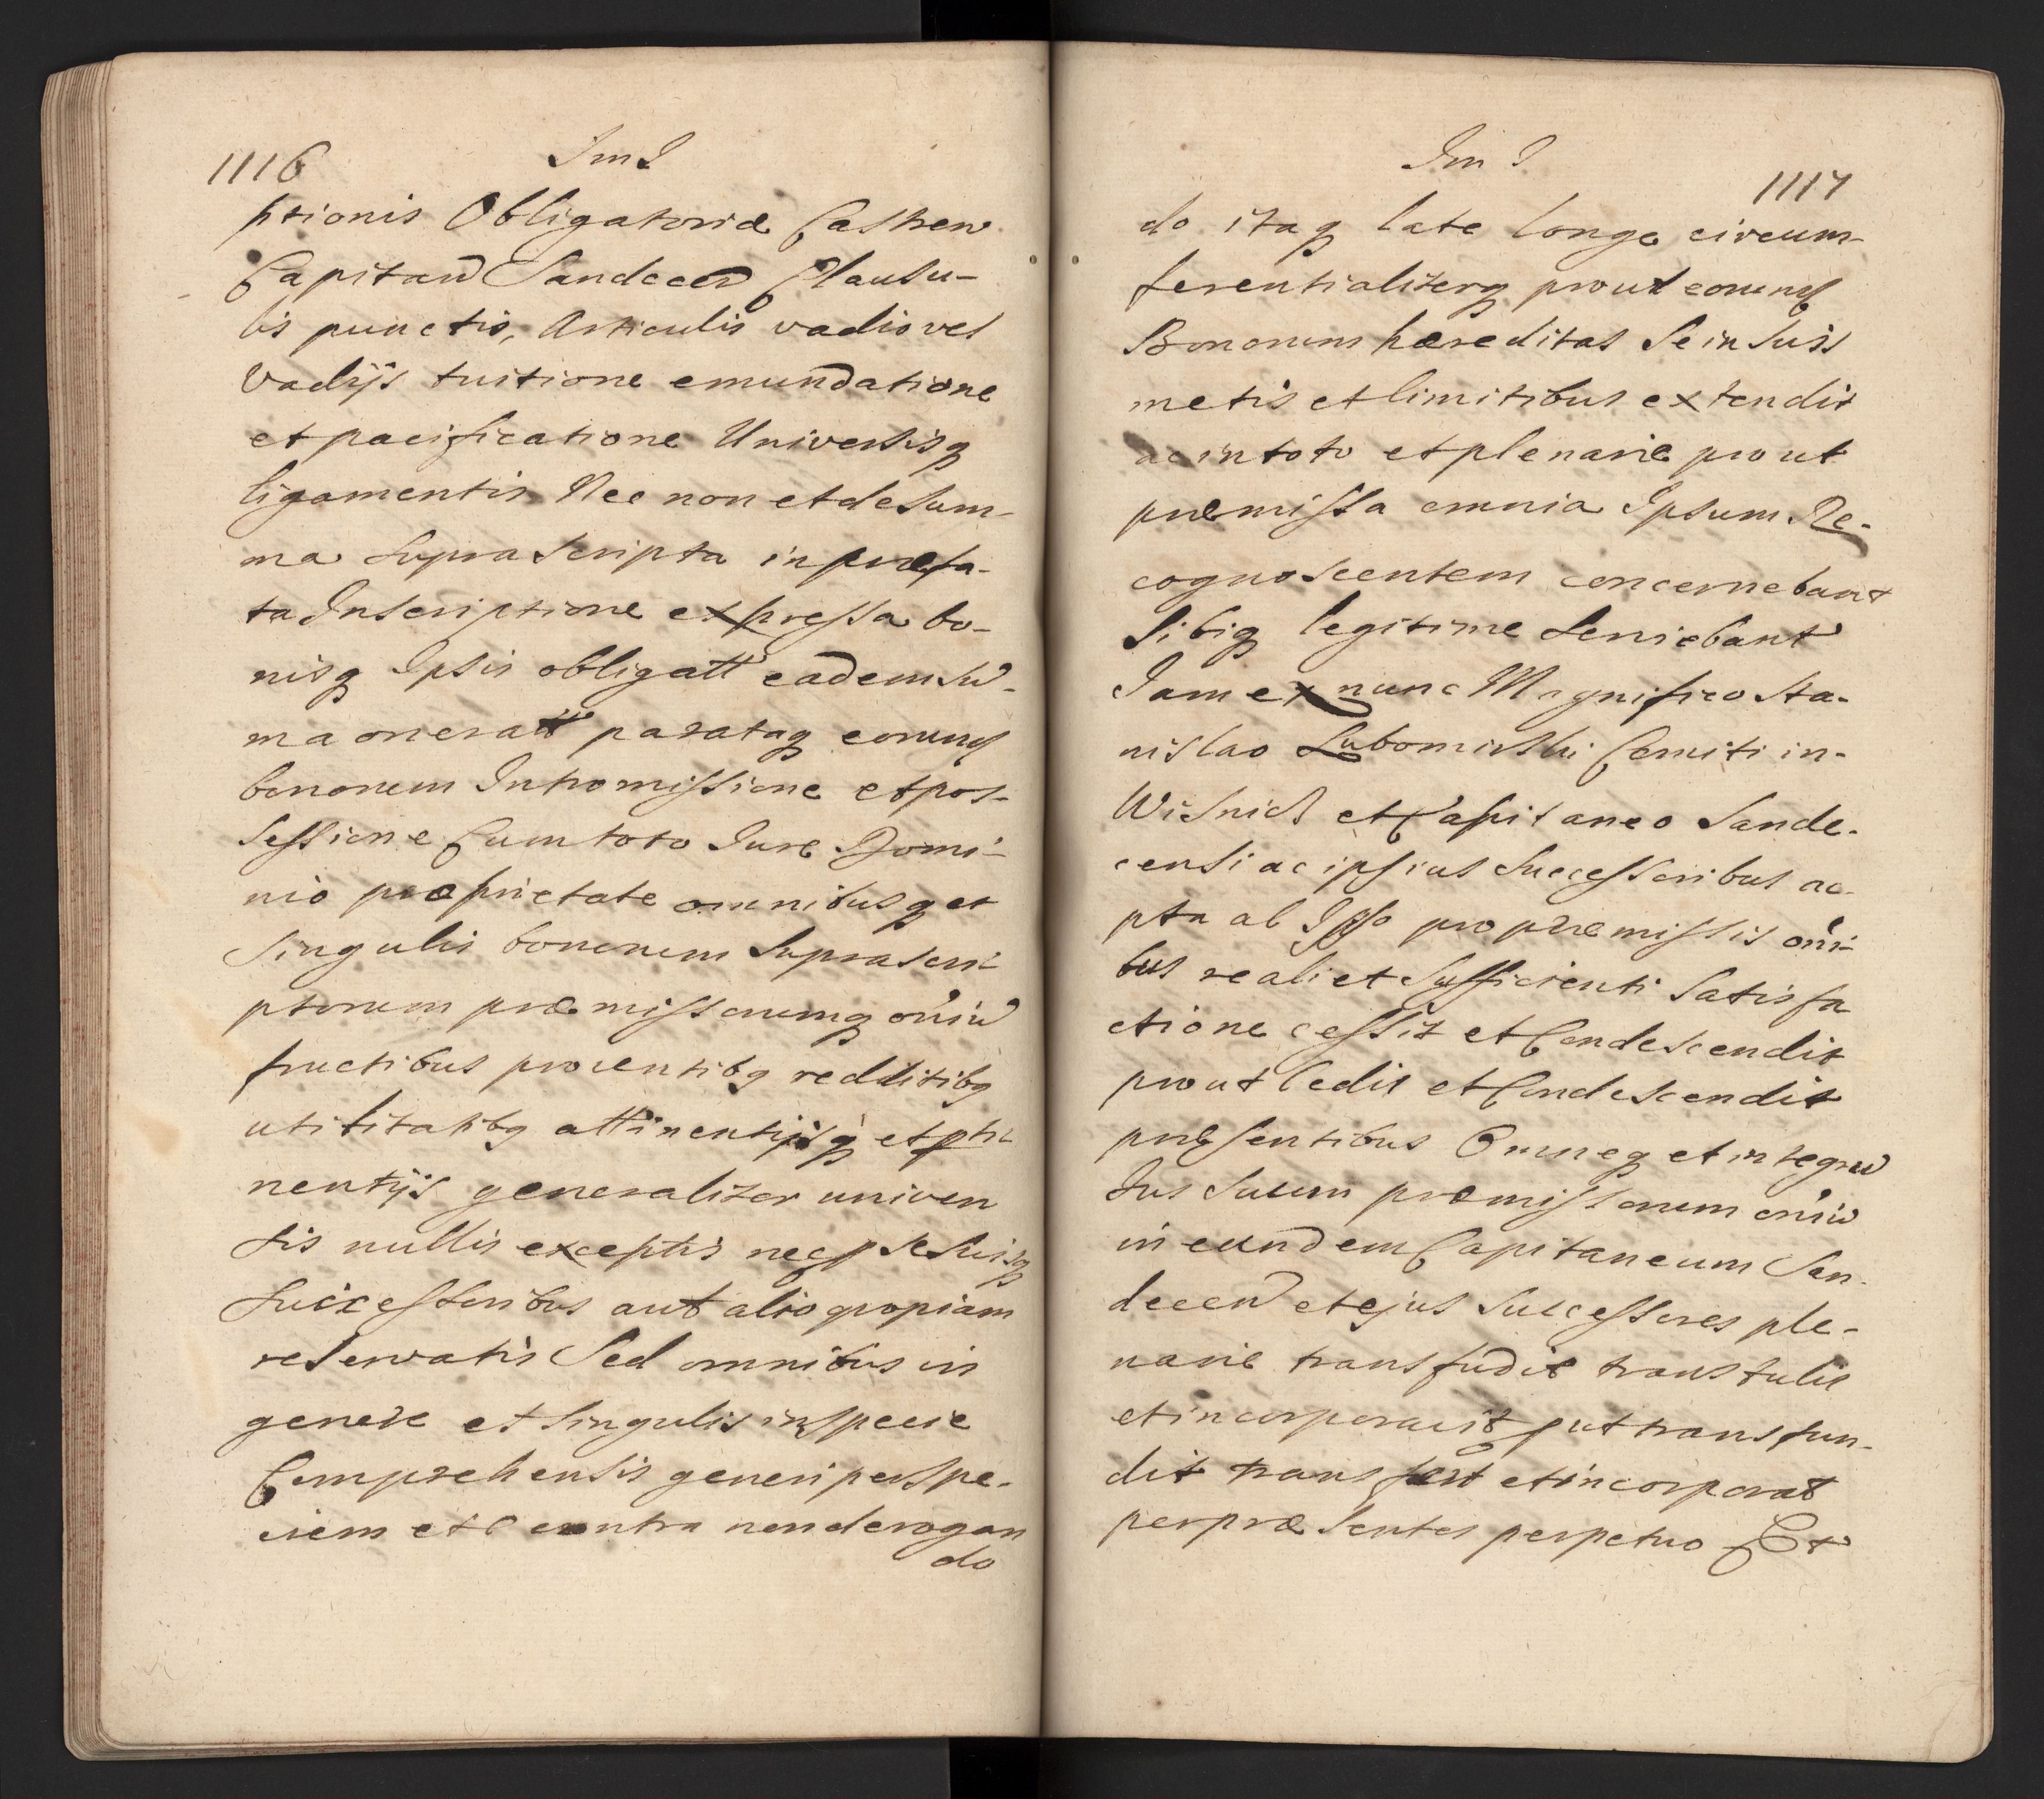 1116
ptionis Obligatoriæ Castren
Capitan Sandecen Clausu-
lis punctis, Articulis vadio vel
Vadijs tuitione emundatione
et pacificatione Universisq
ligamentis Nec non et de Sum-
ma supra scripta in præfa-
ta Inscriptione expressa bo-
nisq Ipsis obligatt eadem Su-
ma oneratt parataq eorumq
bonorum Intromissione et pos-
sessione Cum toto Jure Domi-
nio proprietate omnibusq et
Singulis bonorum Suprascri-
ptorum præmissorumq oniu
fructibus proventibq redditibq
utilitatibq attinentijsq et pti-
nentijs generaliter univer
sis nullis exceptis neq p se suisq
successoribus aut alio quopiam
reservatis Sed omnibus in
genere et singulis in specie
Comprehensis generi per spe-
ciem et e contra non derogan
do
1117
do itaq late longe circum-
ferentialiterq prout eorumq
Bonorum hæreditas Se in Suis
metis et limitibus extendit
ac in toto et plenarie prout
præmissa omnia Ipsum Re-
cognoscentem concernebant
Sibiq legitime Serviebant
Jam ex nunc Magnifico Sta-
nislao Lubomirski Comiti in-
Wisnicz et Capitaneo Sande-
censi ac ipsius Successoribus ac-
pta ab Ipso pro præmissis oni-
bus reali et Sufficienti Satisfa
ctione cessit et Condescendit
prout Cedit et Condescendit
præsentibus Omneq et integru
Jus Suum præmissorum oniu
in eundem Capitaneum San-
decen et ejus Successores ple-
narie transfudit transtulit
et incorporavit put transfun-
dit transfert et incorporat
per præsentes perpetuo Et